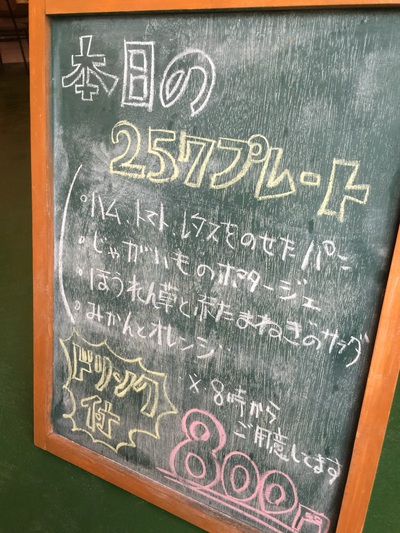 本日の
257プレート
・ハム、トマト、レタスをのせたパン
・じゃがいものポタージュ
・ほうれん草と赤たまねぎのサラダ
・みかんとオレンジ
ドリンク
付
※8時から
ご用意してます
800円